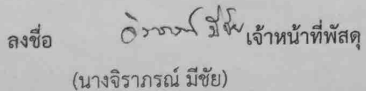 ลงชื่อ จิราภรณ์ มีชัย เจ้าหน้าที่พัสดุ
(นางจิราภรณ์ มีชัย)